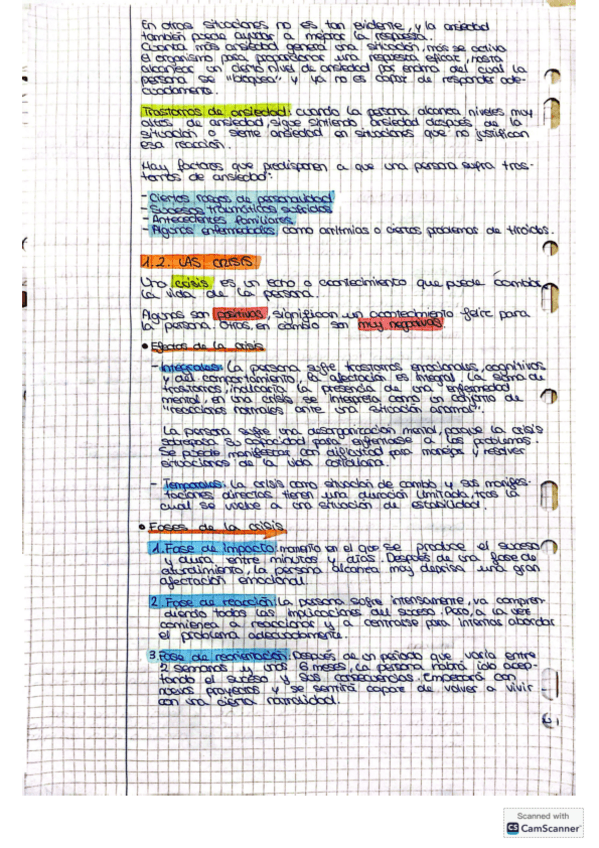 En otras situaciones no es tan evidente, y la ansiedad
también puede ayudar a mejorar la respuesta.
Cuanta más ansiedad genera una situación, más se activa
el organismo para proporcionar una respuesta eficaz, hasta
alcanzar un cierto nivel de ansiedad por encima del cual la
persona se "bloquea" y ya no es capaz de responder ade-
cuadamente.
Trastornos de ansiedad: cuando la persona alcanza niveles muy
altos de ansiedad, sigue sintiendo ansiedad después de la
situación o siente ansiedad en situaciones que no justifican
esa reacción.
Hay factores que predisponen a que una persona sufra tras-
tornos de ansiedad:
- Ciertos rasgos de personalidad
- Sucesos traumáticos sufridos
- Antecedentes familiares
- Algunas enfermedades como arritmias o ciertos problemas de tiroides.
1.2. LAS CRISIS
Una crisis es un echo o acontecimiento que puede cambiar
la vida de la persona.
Algunas son positivas, significan un acontecimiento feliz para
la persona. Otras, en cambio son muy negativas.
• Efectos de la crisis
- Integrales: La persona sufre trastornos emocionales, cognitivos
y del comportamiento, la afectación es integral. La suma de
trastornos, indicaría la presencia de una enfermedad
mental, en una crisis se interpreta como un conjunto de
"reacciones normales ante una situación anormal".
La persona sufre una desorganización mental, porque la crisis
sobrepasa su capacidad para enfrentarse a los problemas.
Se puede manifestar con dificultad para manejar y resolver
situaciones de la vida cotidiana.
- Temporales: La crisis como situación de cambio y sus manifes-
taciones directas tienen una duración limitada, tras la
cual se vuelve a una situación de estabilidad.
• Fases de la crisis
1. Fase de impacto: momento en el que se produce el suceso
y dura entre minutos y días. Después de una fase de
aturdimiento, la persona alcanza muy deprisa una gran
afectación emocional.
2. Fase de reacción: La persona sufre intensamente, va compren-
diendo todas las implicaciones del suceso. Pero, a la vez
comienza a reaccionar y a centrarse para intentar abordar
el problema adecuadamente.
3. Fase de reorientación: Después de un periodo que varía entre
2 semanas y unos 6 meses, la persona habrá ido acep-
tando el suceso y sus consecuencias. Empezará con
nuevos proyectos y se sentirá capaz de volver a vivir
con una cierta normalidad.
Scanned with
CS CamScanner